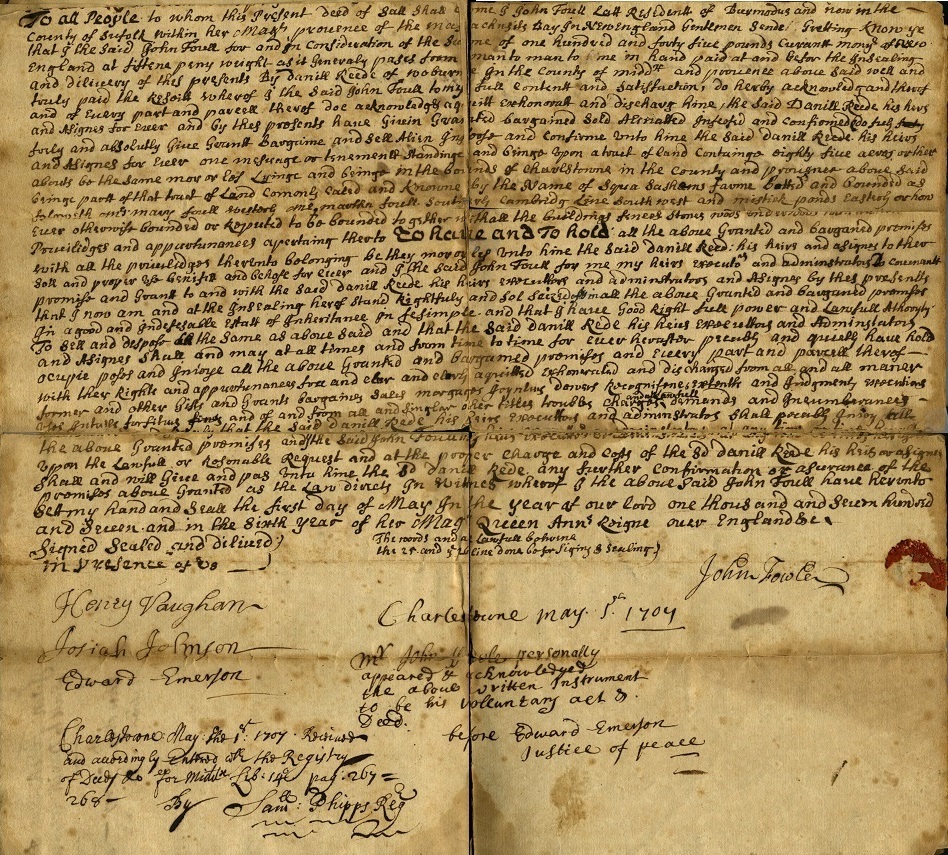 To all People to whom this Present Deed of Sall Shall c me I John Foull Latt Resident of Burmodus and now in the
County of Sufolk within her Majts provence of the mas achusits Bay In NEwEngland Gentleman Sende Greeting Know ye
that I the Said John Foull for and in Consideration of the Su me of one hundred and forty five pounds Currant mony of New
England at fiftene peny weight as it Generaly pases from man to man to me in hand paid at and befor the Insealing
and dilivery of this presents By Daniell Reede of woburn e In the County of midd and provence above Said well and
truly paid the Resait wherof I the Said John Foull to my full Content and Satisfaction, do herby acknowledg and therof
and of Every part and parcell therof doe acknowledg aq uitt Exhonorate and discharg hime, the Said Daniell Reede his heirs
and Asignes for Ever and by thes presents have Givin Gran ted bargained Sold Alienated Infeofed and Confirmed do full
fully and absolutly Give Grant Bargaine and Sell Alien Inf eofe and Confirme Unto hime the Said Daniell Reede his heirs
and Asignes for Ever one mesuage or tenement Standinge and beinge upon a tract of land Containge eighty five acres or ther
abouts be the Same mor or les Lyinge and beinge in the bou nds of Charlstowne in the County and provence above Said
beinge part of that tract of Land Comonly Caled and Knowne by the Name of Squa Sachems farme and bounded as
foloweth mary foull westerly foull Sout herly Cambridg Line South west and mistick ponds Easterly or how
Ever otherwise bounded or Reputed to be bounded together w ith all the buildings fences Stones woods
Previlidges and appurtunances apertaing therto To have and To hold all the above Granted and bargained premises
with all the previlidges therunto belonging be they mor or les Unto hime the Said Daniell Reed: his heirs and asignes to ther
Sole and proper Use benifit and behofe for Ever and I the Said John Foull for me my heirs Executors and adminstrators do Couenant
promise and Grant to and with the Said Daniell Reede his heirs Executors and adminstrators and Asignes by thes presents
that I now am and at the Insealing herof Stand Rightfuly and Sol Seized of in all the above Granted and bargained premises
In a good and Indefesable Estatt of Inheritance In fesimple and that I have Good Right full power and Lawfull Athority
To Sell and dispose all the Same as above Said and that the Said Daniell Rede his heirs Executors and Adminstators
and Asignes Shall and may at all times and from time to time for Ever heraftter and have hold
ocupie poses and Injoye all the above Granted and bargained premises and Every part and parcell therof
with ther Rights and appurtunances free and cler and clerly aquitted Exhonorated and discharged from all and all maner
former and other Gifts and Grants bargaines Sales morgages Joyntus dowers Recognisenc extenth and Judgments Executions
Uses Intails forfitures and of and from all and Singlar other titles troubles Charges demends and Incumberances
that the Said Daniell Rede his heirs Executors and adminstrators Shall Injoy
the above Granted promises and the Said John Foull
Upon the Lawfull or Resonable Request and at the proper Charge and Cost of the Sd daniell Reede his heirs or asignes
Shall and will Give and pas Unto hime the Sd Daniell Rede any further Confirmation or asurance of the
promises above Granted as the Law directs In witnes wherof I the above Said John Foull have herunto
Sett my hand and Seall the first day of May In the year of our lord one thousand and Seven hundred
and Seven and in the Sixth year of her Majts Queen Anns Reigne over England &c
Signed Sealed and dilived The words and a Lawfull
in Presence of Us the 25 and line done befor Signing & Sealing
John Fowle
Henry Vaughan
Charlestowne May 1st 1707
Josiah Johnson
Mr John Fowle personally
Edward Emerson
appeared & acknowledged
the above written Instrument
to be his voluntary act &
Deed.
before Edward Emerson
Justice of peace
Charlestowne May the 1st 1707 Received
and acordingly Entred wth the Registry
of Deeds &c for Middlx Lib: 14: pag: 267
268 By Samll: Phipps Regr